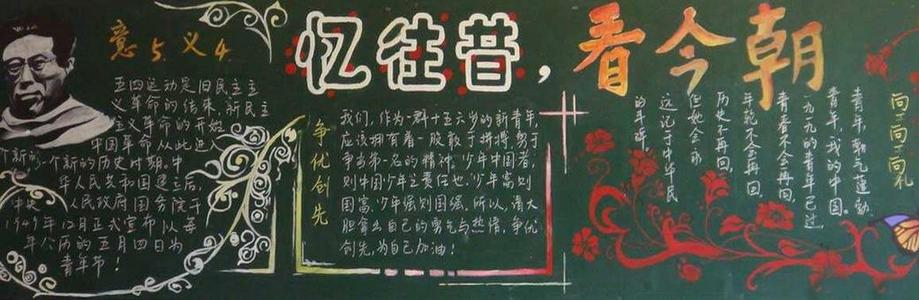 忆往昔，看今朝
意5.义4
五四运动是旧民主主
义革命的结束,新民主
主义革命的开始
中国革命从此进入
个新的一个新的历史时期。中
华人民共和国建立后,
中央人民政府国务院于
1949年12月正式宣布以每
年公历的五月四日为
青年节！
争优创先
我们,作为一群十五六岁的新青年,
应该拥有着一股敢于拼搏,勇于
争当第一名的精神。少年中国者,
则中国少年之责任也。少年富则
国富,少年强则国强。所以,请大
胆露出自己的勇气与热情,争优
创先,为自己加油！
青年,朝气蓬勃
青年,我的中国。
一九一九的青年已过
青春不会再回,
年轮不会再回
历史不再回,
但她会永
远记于中华民